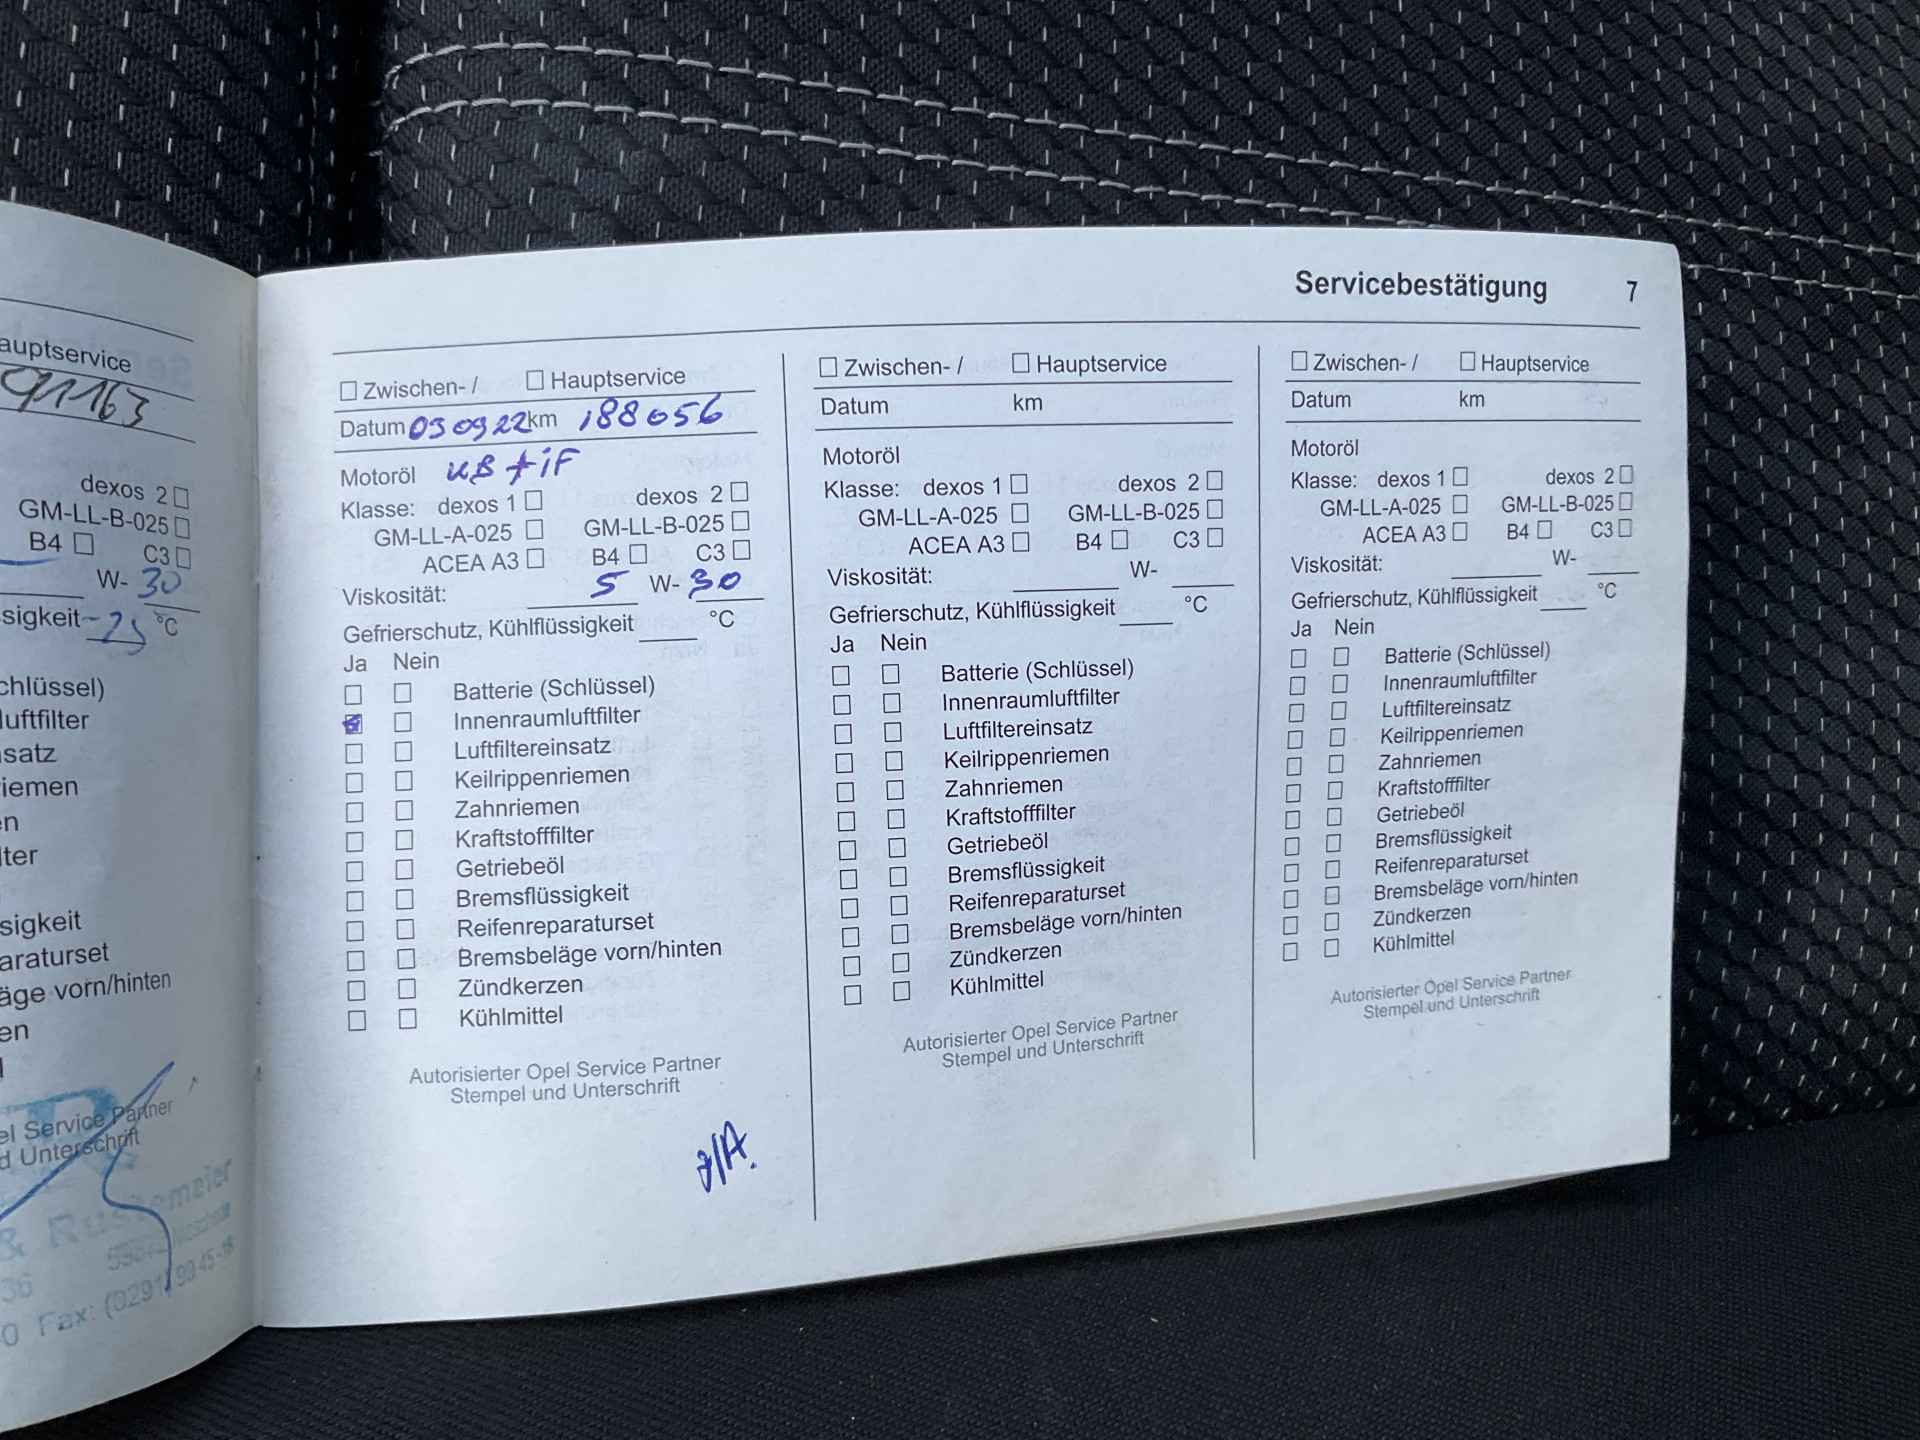 auptservice
91163
dexos 2
GM-LL-B-025
B4 C3
W- 30
ssigkeit -25 °C
chlüssel)
luftfilter
nsatz
riemen
en
lter
ssigkeit
araturset
äge vorn/hinten
en
el Service Partner
d Unterschrift
36
0 Fax: (0291)
Servicebestätigung 7
Zwischen- / Hauptservice
Datum 03 09 22 km 188056
Motoröl
Klasse: dexos 1 dexos 2
GM-LL-A-025 GM-LL-B-025
ACEA A3 B4 C3
Viskosität: 5 W- 30
Gefrierschutz, Kühlflüssigkeit °C
Ja Nein
Batterie (Schlüssel)
Innenraumluftfilter
Luftfiltereinsatz
Keilrippenriemen
Zahnriemen
Kraftstofffilter
Getriebeöl
Bremsflüssigkeit
Reifenreparaturset
Bremsbeläge vorn/hinten
Zündkerzen
Kühlmittel
Autorisierter Opel Service Partner
Stempel und Unterschrift
Zwischen- / Hauptservice
Datum km
Motoröl
Klasse: dexos 1 dexos 2
GM-LL-A-025 GM-LL-B-025
ACEA A3 B4 C3
Viskosität: W-
Gefrierschutz, Kühlflüssigkeit °C
Ja Nein
Batterie (Schlüssel)
Innenraumluftfilter
Luftfiltereinsatz
Keilrippenriemen
Zahnriemen
Kraftstofffilter
Getriebeöl
Bremsflüssigkeit
Reifenreparaturset
Bremsbeläge vorn/hinten
Zündkerzen
Kühlmittel
Autorisierter Opel Service Partner
Stempel und Unterschrift
Zwischen- / Hauptservice
Datum km
Motoröl
Klasse: dexos 1 dexos 2
GM-LL-A-025 GM-LL-B-025
ACEA A3 B4 C3
Viskosität: W-
Gefrierschutz, Kühlflüssigkeit °C
Ja Nein
Batterie (Schlüssel)
Innenraumluftfilter
Luftfiltereinsatz
Keilrippenriemen
Zahnriemen
Kraftstofffilter
Getriebeöl
Bremsflüssigkeit
Reifenreparaturset
Bremsbeläge vorn/hinten
Zündkerzen
Kühlmittel
Autorisierter Opel Service Partner
Stempel und Unterschrift